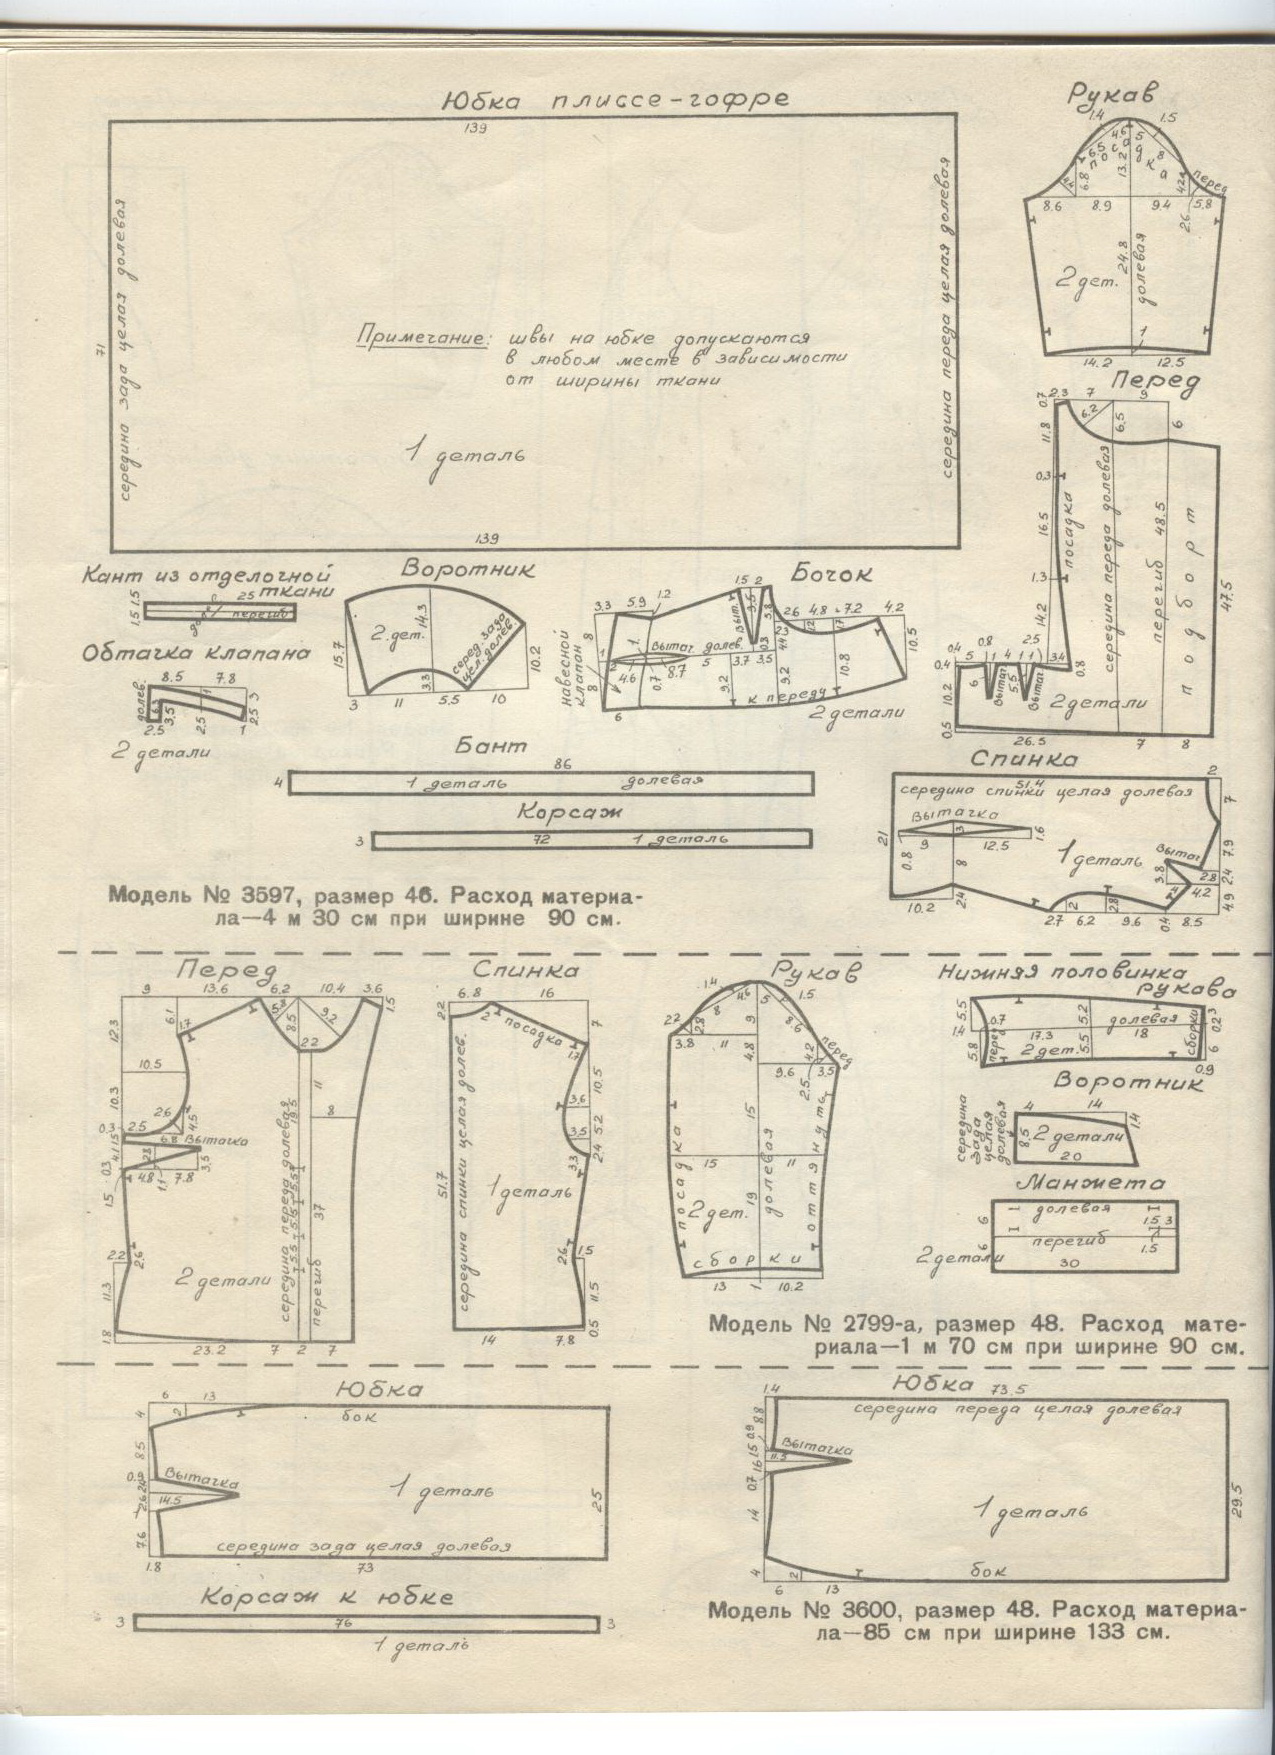 Юбка плиссе-гофре
139
71
середина зада целая долевая
середина переда целая долевая
Примечание: швы на юбке допускаются
в любом месте в зависимости
от ширины ткани
1 деталь
139
Рукав
1.4
1.5
4.6
5
6.5
посадка
8
13.2
6.8
4.4
4.2
перед
8.6
8.9
9.4
5.8
2.6
24.8
долевая
2 дет.
1
14.2
12.5
Перед
0.7
2.3
7
9
6.2
6.5
6
11.8
0.3
16.5
посадка
середина переда долевая
перегиб 48.5
подборт
47.5
1.3
14.2
2.5
0.4
5
0.8
1
4
1
1
3.4
0.4
0.8
6
вытач.
5.5
вытач.
10.2
2 детали
0.5
26.5
7
8
Кант из отделочной
ткани
25
1.5 1.5
долев.
перегиб
Обтачка клапана
8.5
7.8
долев.
3.5
2.5
1
2.5 3
2.5
1
2 детали
Воротник
14.3
2 дет.
серед. зада
цел. долев.
15.7
10.2
3.3
3
11
5.5
10
Бочок
1.5 2
3.3
5.9
1.2
8
навесной
клапан
1
1
вытач.
долев.
вытач.
3.5
5.8
2.6
4.8
7.2
4.2
10.5
4.6
0.7
8.7
5
3.7
3.5
0.3
9.2
9.2
10.8
8
6
к переду
2 детали
Бант
86
4
1 деталь
долевая
Корсаж
3
72
1 деталь
Спинка
51.4
середина спинки целая долевая
2
7
21
Вытачка
3
1.6
9
12.5
0.8
8
1 деталь
вытач.
7.9
3.8
2.8
2.4
4.2
4.9
10.2
2.4
2.7
2
6.2
2.8
9.6
0.4
8.5
Модель № 3597, размер 46. Расход материа-
ла—4 м 30 см при ширине 90 см.
Перед
9
13.6
6.2
10.4
3.6
1.5
6.1
1.7
5.8
8.5
9.2
12.3
2.2
10.5
11
10.3
2.6
4.5
19.5
8
0.3
2.5
1.5
6.8
Вытачка
4.1
2.8
3.5
0.3
4.8
1.1
7.8
15
середина переда долевая
37
перегиб
2.2
2.6
2 детали
11.3
1.8
23.2
7
2
7
Спинка
2.2
6.8
16
2
посадка
7
1.7
10.5
3.6
5.2
3.5
2.4
3.3
51.7
середина спинки целая долев.
1 деталь
2.6
1.5
11.5
0.5
14
7.8
Рукав
1.4
4.6
5
1.5
8
2.2
2.8
9
8.6
перед
3.8
11
4.8
4.2
9.6
3.5
2.5
15
15
11
посадка
долевая
оттянуть
19
2 дет.
сборки
13
1
10.2
Нижняя половинка
рукава
5.5
0.7
5.2
долевая
3
0.2
1.4
17.3
18
сборки
5.8
перед
2 дет.
5.5
6
0.9
Воротник
середина
зада
целая
долевая
4
14
1.4
8.5
2 детали
20
Манжета
долевая
6
1.5 3
перегиб
1.5
6
2 детали
30
Модель № 2799-а, размер 48. Расход мате-
риала—1 м 70 см при ширине 90 см.
Юбка
6
13
4
2
бок
8.5
0.9
Вытачка
14.5
1 деталь
25
7.6
середина зада целая долевая
1.8
73
Корсаж к юбке
3
76
3
1 деталь
Юбка
73.5
1.4
середина переда целая долевая
8.8
0.9
1.5
Вытачка
11.5
1.6
0.7
14
1 деталь
29.5
4
2
бок
6
13
Модель № 3600, размер 48. Расход материа-
ла—85 см при ширине 133 см.